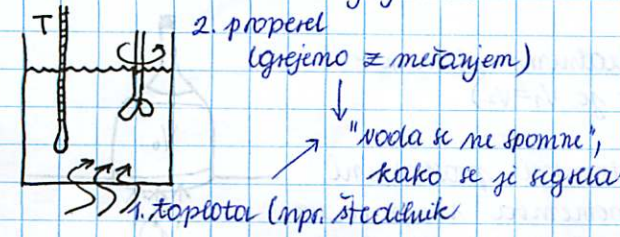 T
2. properel
(grejemo z mešanjem)
"voda se ne spomne",
kako se je segrela
1. toplota (npr. štedilnik